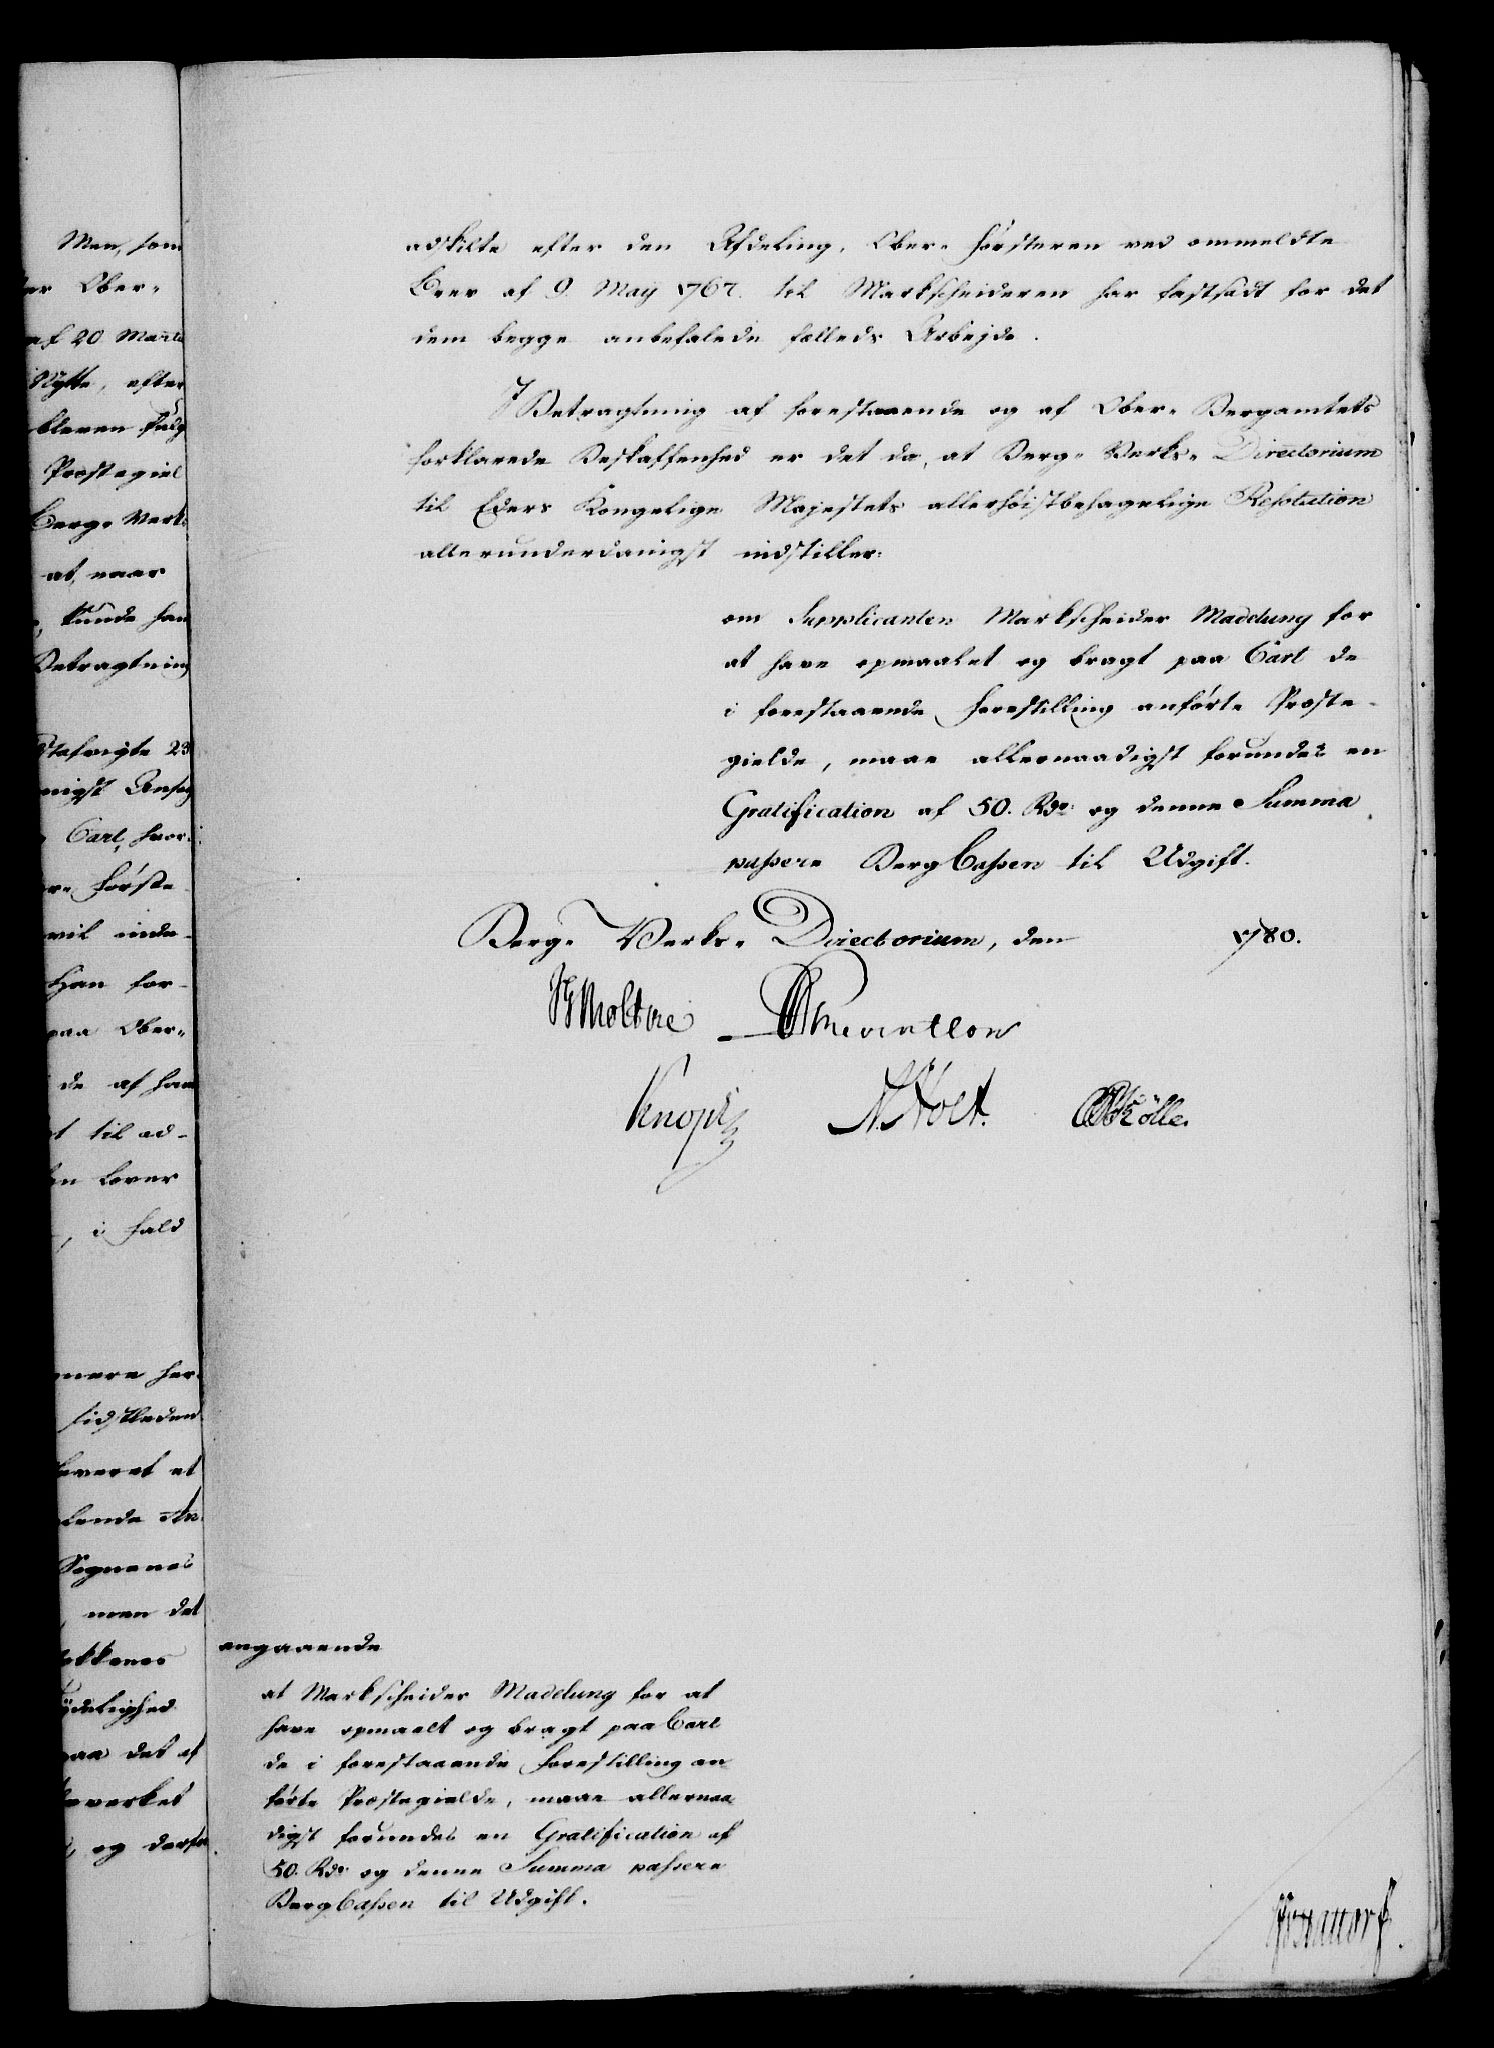 Men, som
Ober-
af 20 Martii
Nytte, efter
bleven
Præstegiel
Berg-Verks
at, naar
, kunde han
Betragtning
23
nigst
Cart, hvor
Første
vil inde-
Han for-
paa Ober-
de af ham
til ad-
lover
, i Fald
sidstleden
leveret et
Sognenes
, men det
paa det af
, og derfor
adskilte efter den Afdeling, Ober-Førsteren ved ommeldte
Brev af 9 May 1767. til Markscheideren har fastsadt for det
dem begge anbefalede fælleds Arbejde.
I Betragtning af forestaaende og af Ober-Bergamtets
forklarede Beskaffenhed er det da, at Berg-Verks-Directorium
til Eders Kongelige Majestets allerhøistbehagelige Resolution
allerunderdanigst indstiller:
om Supplicanten Markscheider Madelung for
at have opmaalet og bragt paa Cart de
i forestaaende Forestilling anførte Præste-
gielde, maae allernaadigst forundes en
Gratification af 50. Rdr. og denne Summa
passere BergCassen til Udgift.
Berg-Verks-Directorium, den 1780.
Moltke Reventlow
Knoph Holt. Kölle.
angaaende
at Markscheider Madelung for at
have opmaalt og bragt paa Cart
de i forestaaende Forestilling an
førte Præstegielde, maae allernaa
digst forundes en Gratification af
50. Rdr. og denne Summa passere
BergCassen til Udgift.